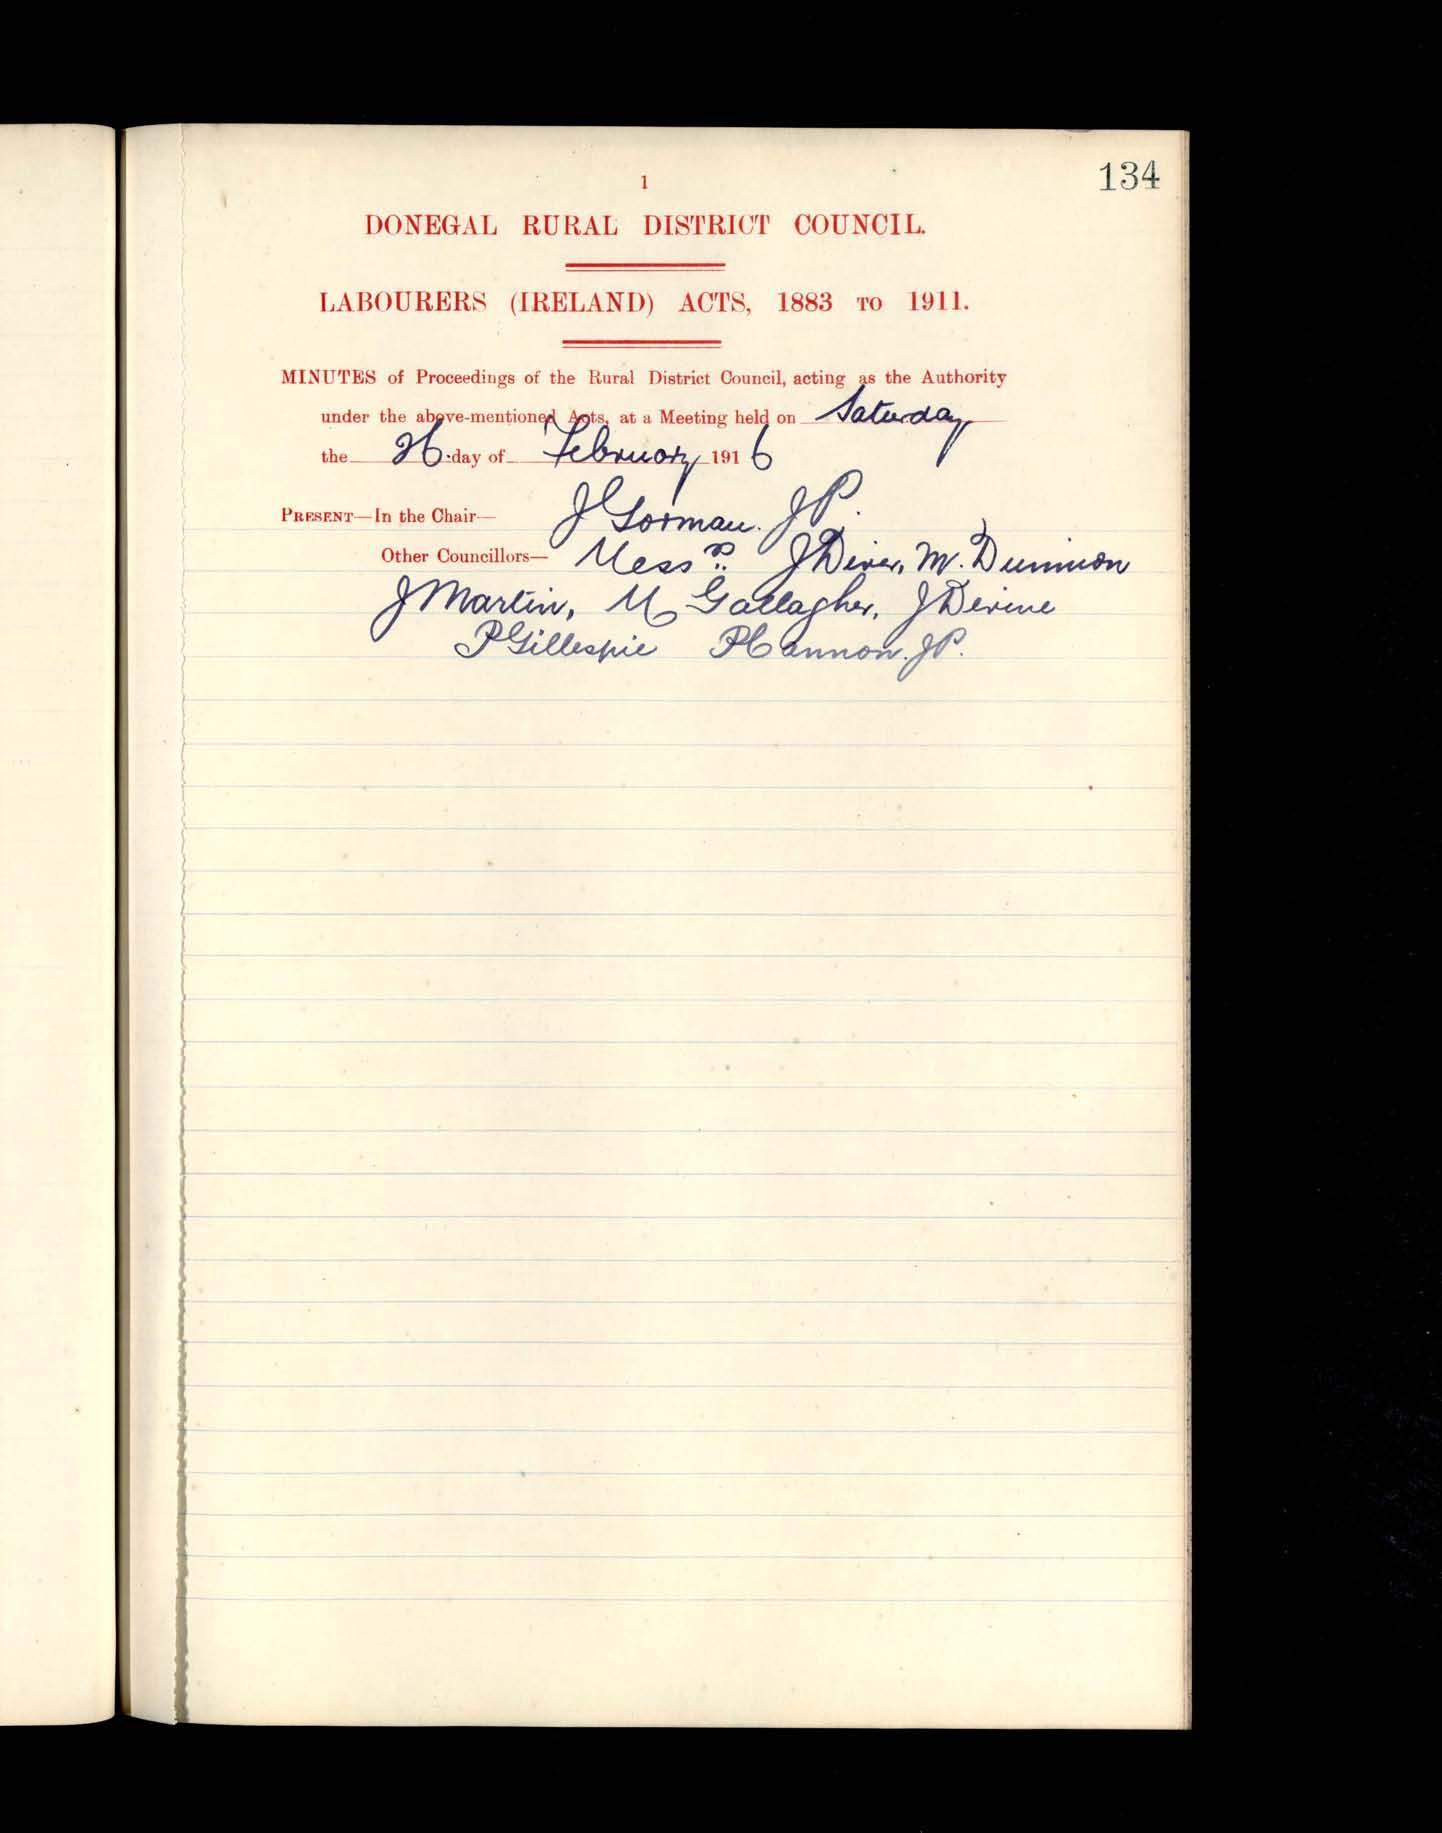 134
1
DONEGAL RURAL DISTRICT COUNCIL.
LABOURERS (IRELAND) ACTS, 1883 TO 1911.
MINUTES of Proceedings of the Rural District Council, acting as the Authority
under the above-mentioned Acts, at a Meeting held on Saturday
the 26 day of February 1916
PRESENT—In the Chair— J Gorman. J.P.
Other Councillors— Messrs J Diver, M. Dunnion
J Martin, M Gallagher, J Devine
P Gillespie P Cannon. J.P.